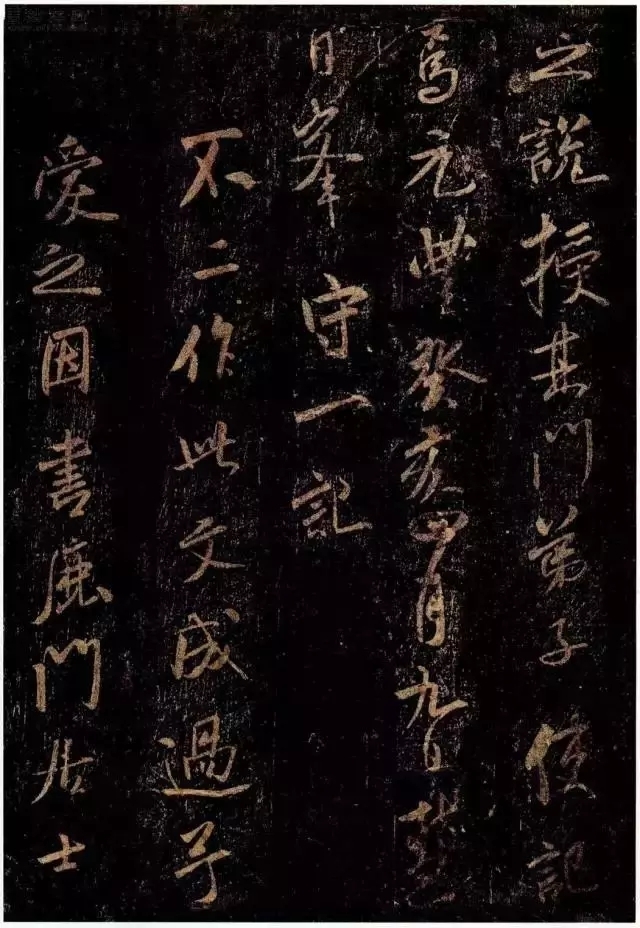 之說授其門弟子使記
焉元豐癸亥四月九日慧
日峯 守一記
不二作此文成過予
愛之因書鹿門居士